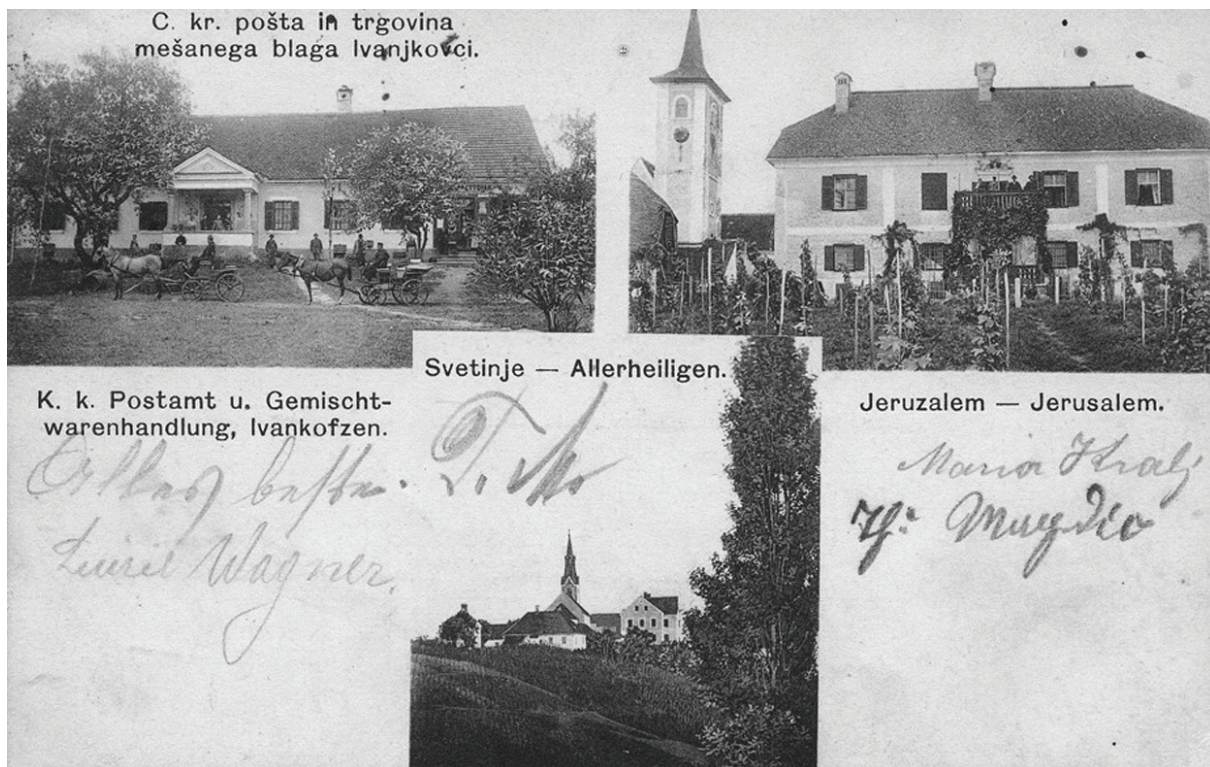 C. kr. pošta in trgovina
mešanega blaga Ivanjkovci.
Svetinje — Allerheiligen.
K. k. Postamt u. Gemischt-
warenhandlung, Ivankofzen.
Jeruzalem — Jerusalem.
Alles beste.
Wagner.
Maria